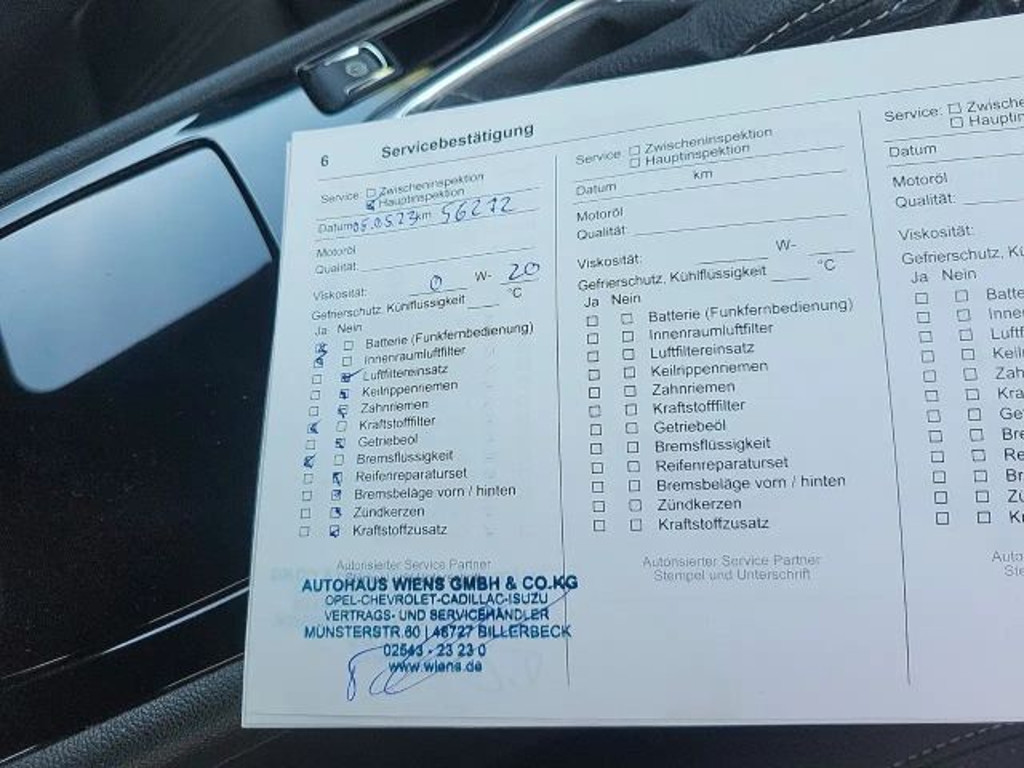 6 Servicebestätigung
Service: Zwischeninspektion
Hauptinspektion
Datum 05.05.23 km 56272
Motoröl
Qualität:
Viskosität: 0 W- 20
Gefrierschutz, Kühlflüssigkeit °C
Ja Nein
Batterie (Funkfernbedienung)
Innenraumluftfilter
Luftfiltereinsatz
Keilrippenriemen
Zahnriemen
Kraftstofffilter
Getriebeöl
Bremsflüssigkeit
Reifenreparaturset
Bremsbeläge vorn / hinten
Zündkerzen
Kraftstoffzusatz
Autorisierter Service Partner
AUTOHAUS WIENS GMBH & CO.KG
OPEL-CHEVROLET-CADILLAC-ISUZU
VERTRAGS- UND SERVICEHÄNDLER
MÜNSTERSTR.60 | 48727 BILLERBECK
02543 - 23 23 0
www.wiens.de
Service Zwischeninspektion
Hauptinspektion
Datum km
Motoröl
Qualität:
Viskosität: W-
Gefrierschutz, Kühlflüssigkeit °C
Ja Nein
Batterie (Funkfernbedienung)
Innenraumluftfilter
Luftfiltereinsatz
Keilrippenriemen
Zahnriemen
Kraftstofffilter
Getriebeöl
Bremsflüssigkeit
Reifenreparaturset
Bremsbeläge vorn / hinten
Zündkerzen
Kraftstoffzusatz
Autorisierter Service Partner
Stempel und Unterschrift
Service: Zwische
Hauptin
Datum
Motoröl
Qualität:
Viskosität:
Gefrierschutz, Kü
Ja Nein
Batte
Inner
Luftf
Keil
Zah
Kra
Ge
Bre
Re
Br
Zü
Kr
Auto
Ste